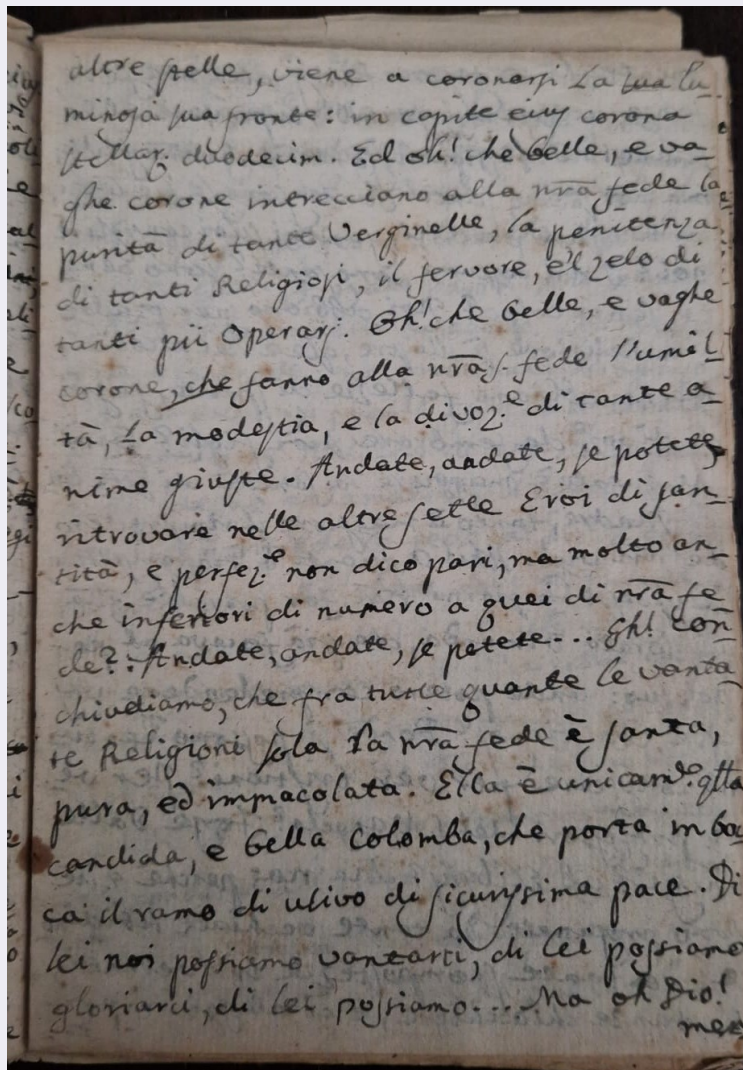 altre stelle, viene a coronarsi la sua lu-
minosa sua fronte: in capite eius corona
stellar. duodecim. Ed oh! che belle, e va-
ghe corone intrecciano alla nrã fede la
purità di tante Verginelle, la penitenza
di tanti Religiosi, il fervore, e'l zelo di
tanti pii Operarj. Oh! che belle, e vaghe
corone, che fanno alla nrã s. fede l'umil-
tà, la modestia, e la divoz.e di tante a-
nime giuste. Andate, andate, se potete,
ritrovare nelle altre sette Eroi di san-
tità, e perfez.e non dico pari, ma molto an-
che inferiori di numero a quei di nrã fe-
de?. Andate, andate, se potete... Eh! con-
chiudiamo, che fra tutte quante le vanta-
te Religioni sola la nrã fede è santa,
pura, ed immacolata. Ella è unicam.te qlla
candida, e bella Colomba, che porta in boc-
ca il ramo di ulivo di sicurissima pace. Di
lei noi possiamo vantarci, di lei possiamo
gloriarci, di lei possiamo.... Ma oh Dio!